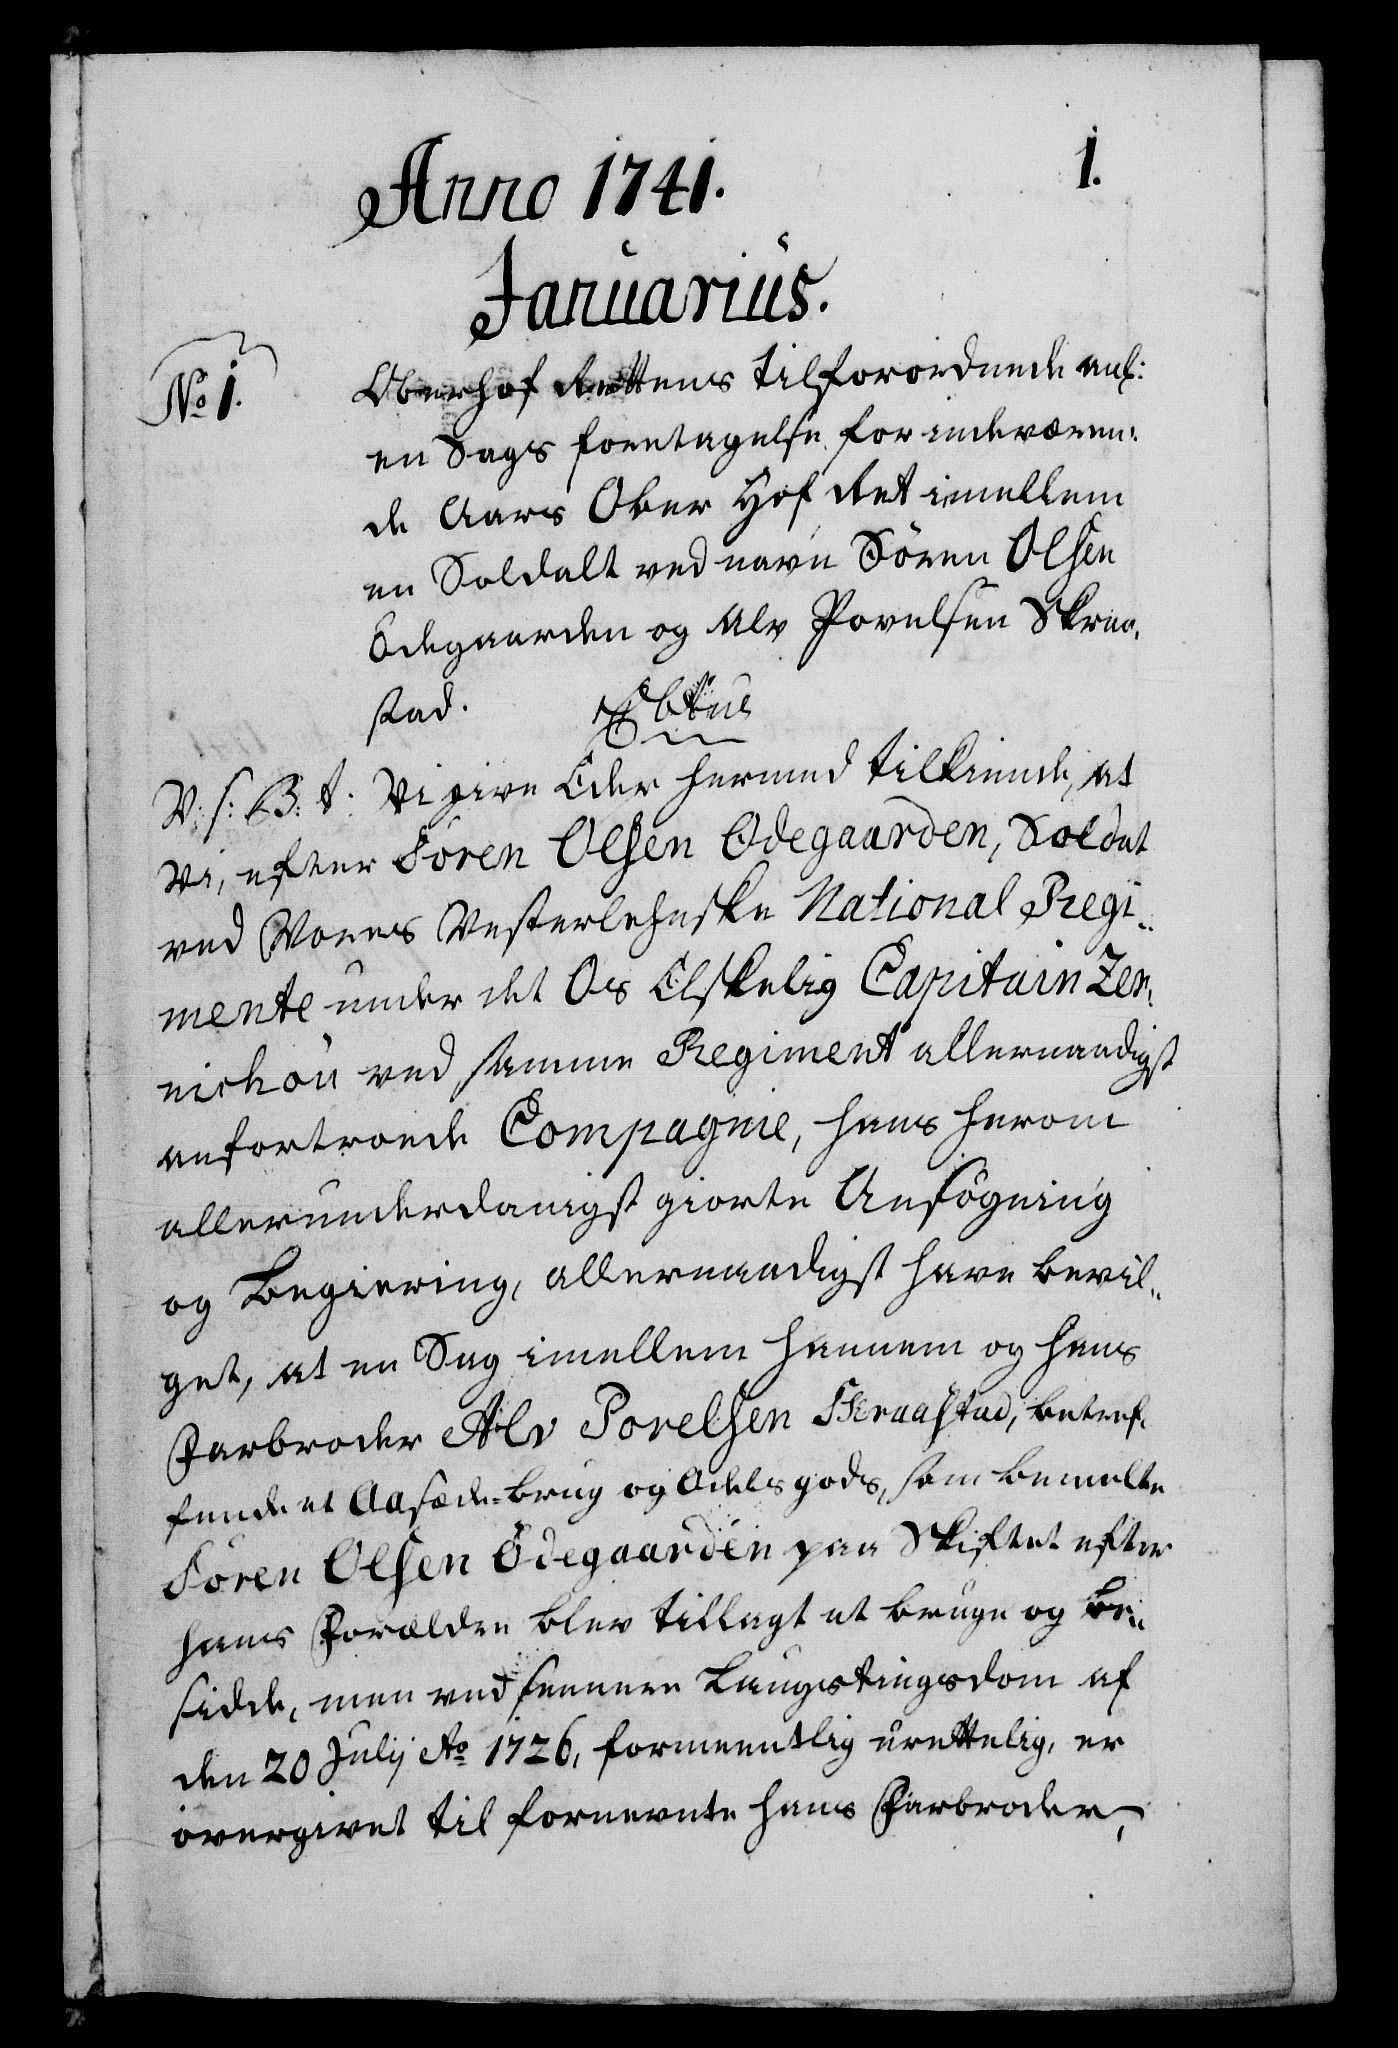 1.
Anno 1741.
Januarius.
No 1.
Oberhof Rettens tilforordnede anl:
en Sags foretagelse for indeværen:
de Aars Ober Hof Ret imellem
en Soldatt ved navn Sören Olsen
Ödegaarden og Alv Povelsen Skraa,
stad.
V: s: G: t: Vi give Eder hermed tilkiende, at
Vi, efter Sören Olsen Ödegaarden, Soldat
ved Vores Vesterlehnske National Regi„
mente under det Os Elskelig Capitain Zer,
nichou ved samme Regiment allernaadigst
anfortroede Compagnie, hans herom
allerunderdanigst giorte Ansøgning
og Begiering, allernaadigst have bevil„
get, at en Sag imellem hannem og hans
Farbroder Alv Povelsen Skraastad, betref,
fende et Aasæde-brug og Odels gods, som bemelte
Sören Olsen Ödegaarden paa Skiftet efter
hans Forældre blev tillagt at bruge og be„
sidde, men ved sennere Laugtingsdom af
den 20 Julij Ao 1726, formeentlig urettelig, er
overgivet til fornevnte hans Farbroder,